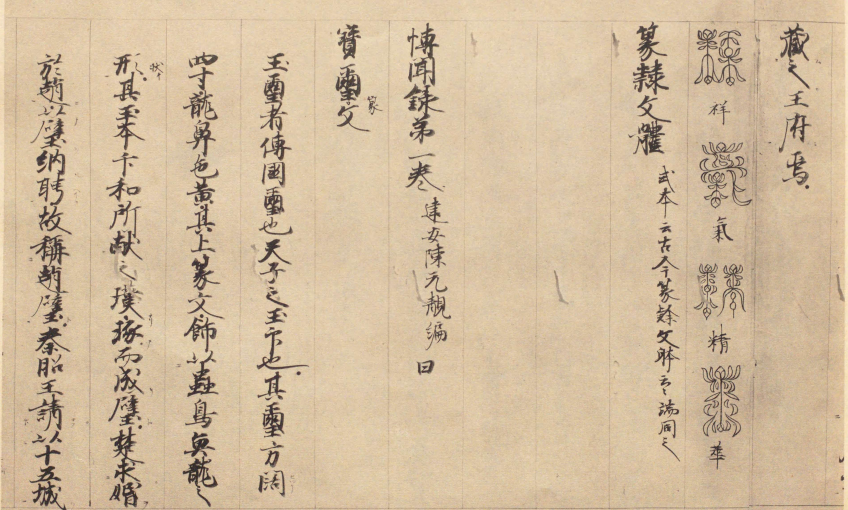 藏之王府焉
祥氣精華
篆隸文體 或本云古今篆隸文體云々端同之
博聞録第一巻 建安陳元靚編曰
寶璽篆文
玉璽者傳國璽也天子之玉印也其璽方闊
四寸龍鼻色黄其上篆文飾以蟲鳥魚龍之
形状其玉本卞和所献之璞琢而成璧楚求婚
於趙以璧納聘故稱趙璧秦昭王請以十五城